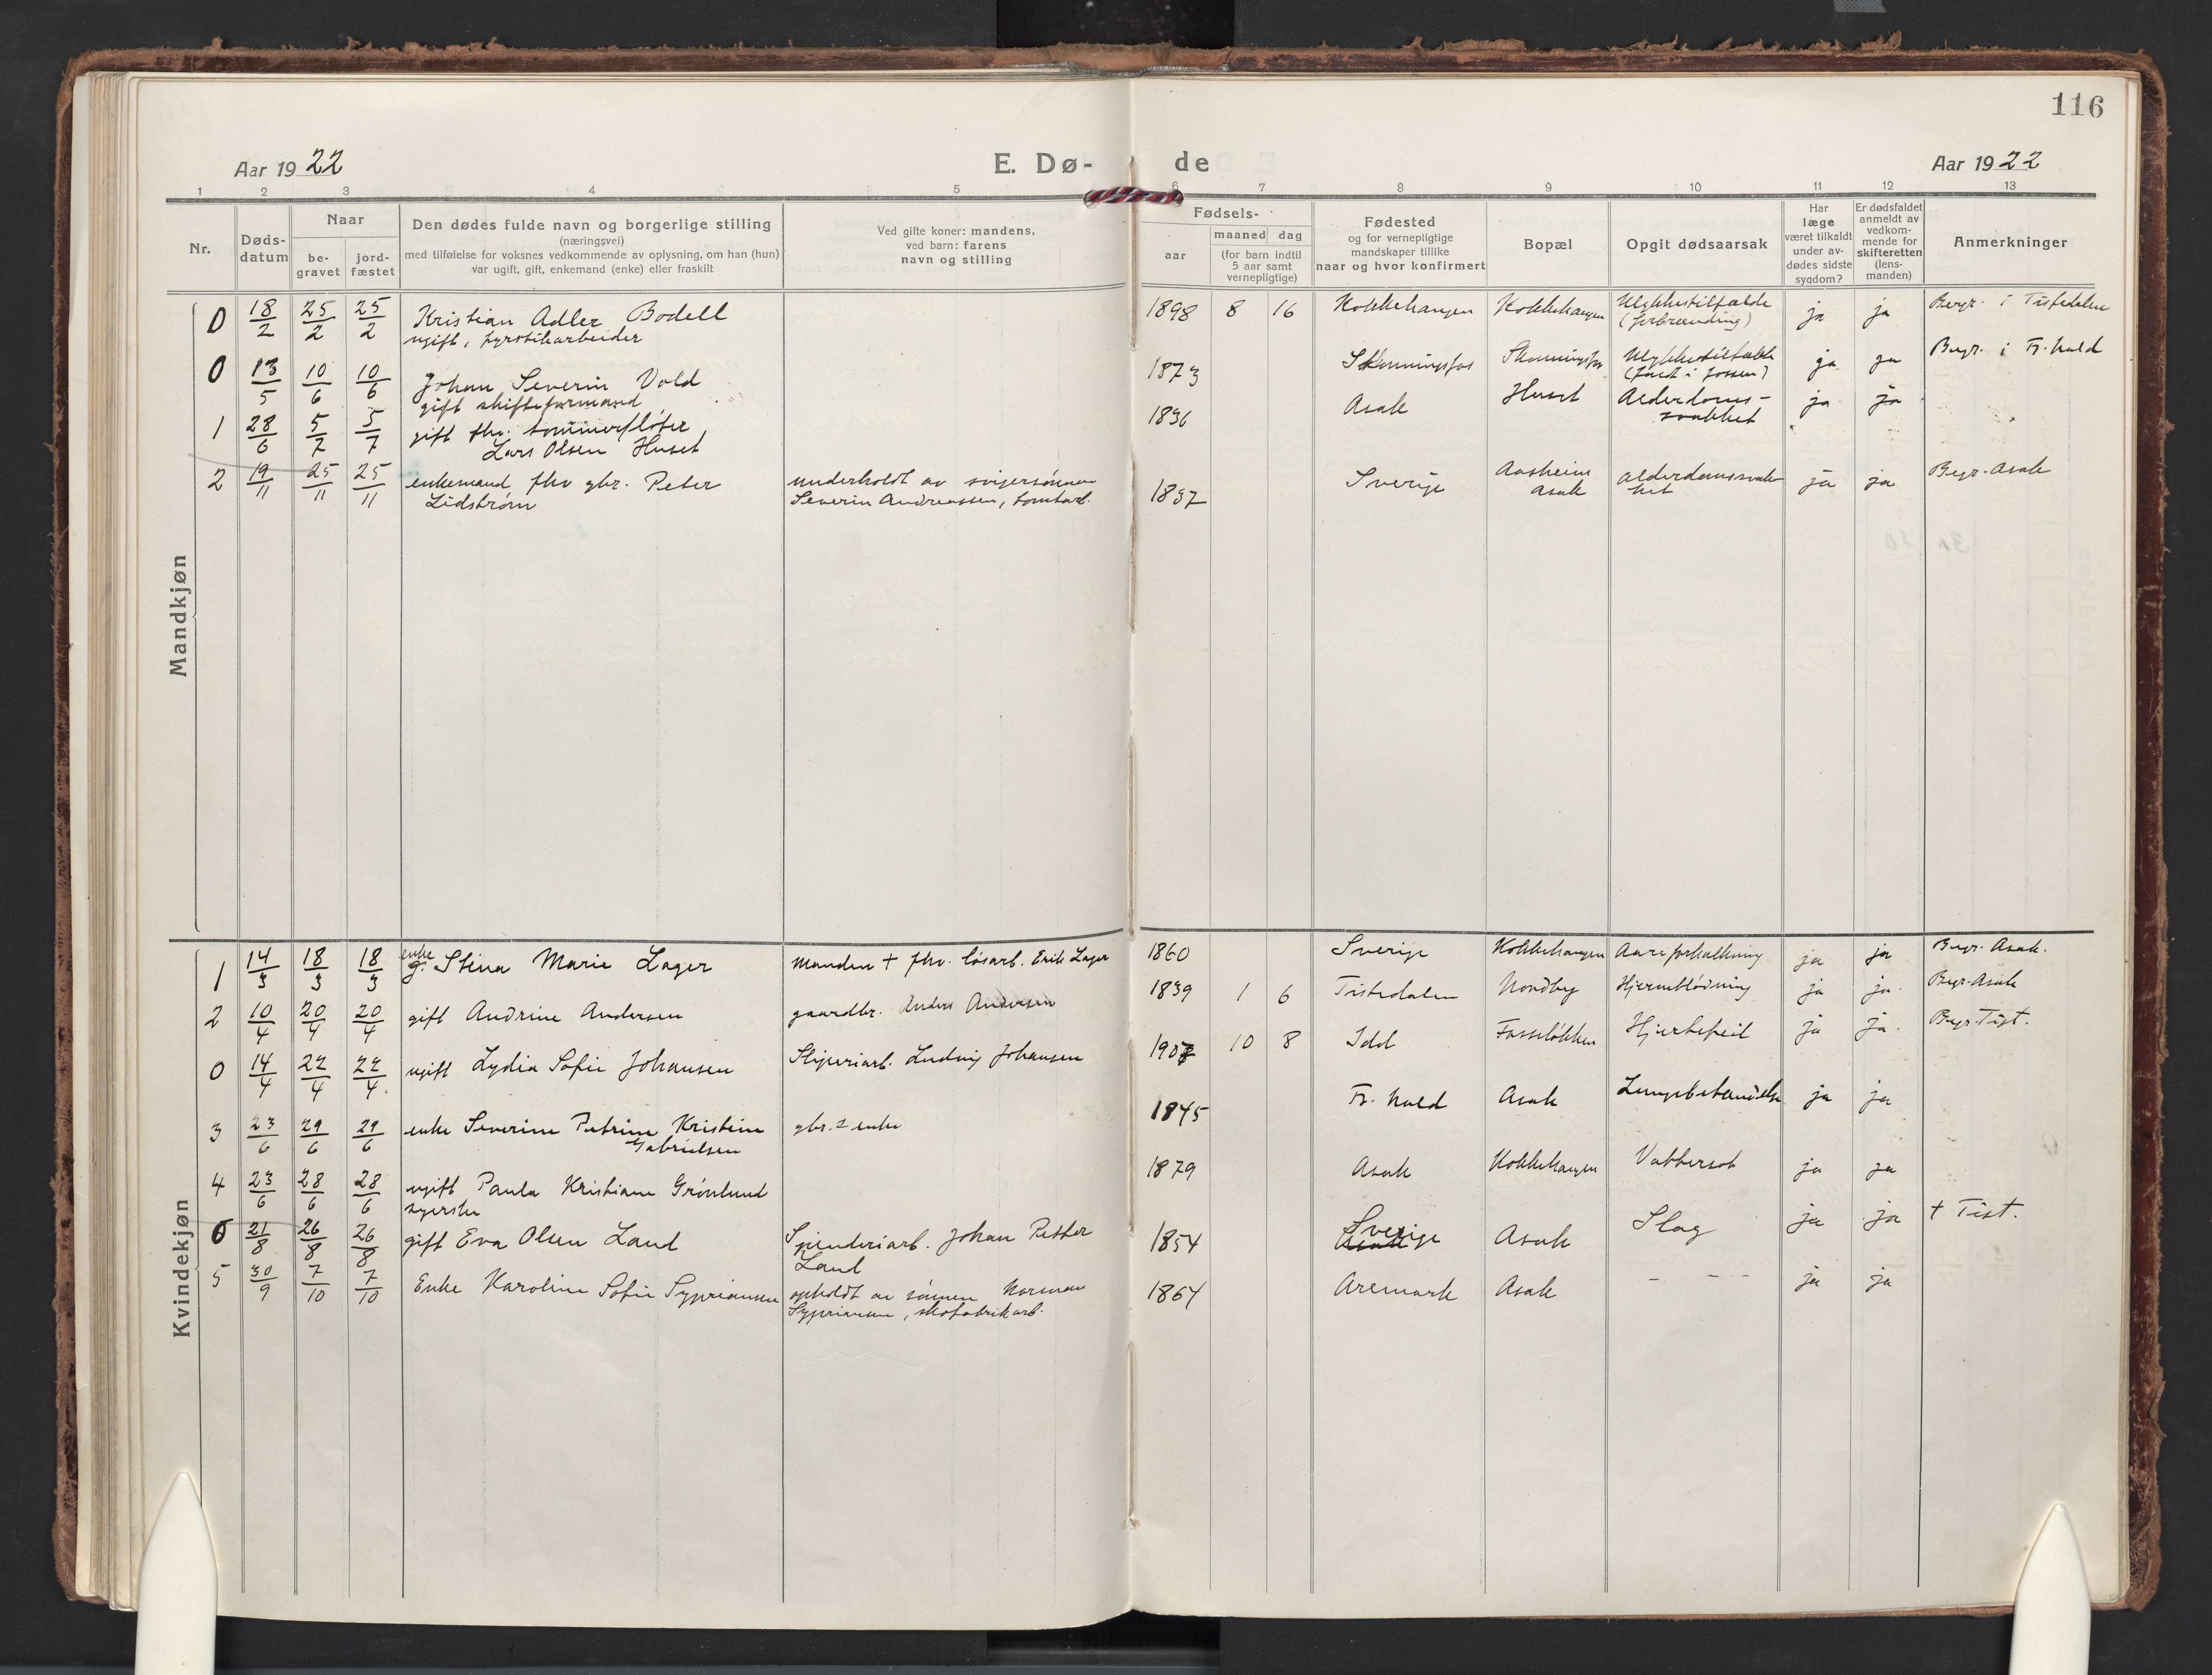 116
Aar 1922
E. Dø-
de
Aar 1922
1 2 3 4 5 6 7 8 9 10 11 12 13
Nr.
Døds-
datum
Naar
be-
gravet
jord-
fæstet
Den dødes fulde navn og borgerlige stilling
(næringsvei)
med tilføielse for voksnes vedkommende av oplysning, om han (hun)
var ugift, gift, enkemand (enke) eller fraskilt
Ved gifte koner: mandens,
ved barn: farens
navn og stilling
Fødsels-
aar
maaned dag
(for barn indtil
5 aar samt
vernepligtige)
Fødested
og for vernepligtige
mandskaper tillike
naar og hvor konfirmert
Bopæl
Opgit dødsaarsak
Har
læge
været tilkaldt
under av-
dødes sidste
sygdom?
Er dødsfaldet
anmeldt av
vedkom-
mende for
skifteretten
(lens-
manden)
Anmerkninger
Mandkjøn
0 18/2 25/2 25/2 Kristian Adler Bodell 1898 8 16 Kokkehaugen Kokkehaugen Ulykkestilfælde ja ja Begr. i Tistedalen
ugift, fyrstikarbeider (forbrænding)
0 13/5 10/6 10/6 Johan Severin Vold 1873 Skonningsfos Skonningsfos Ulykkestilfælde ja ja Begr. i Fr.hald
gift skifteformand (faldt i fossen)
1 28/6 5/7 5/7 gift fhv. tømmerfløter 1836 Asak Huset Alderdoms- ja ja
Lars Olsen Huset svakhet
2 19/11 25/11 25/11 enkemand fhv gbr. Peter underholdt av svigersønnen 1837 Sverige Aasheim alderdomssvak- ja ja Begr. Asak
Lidstrøm Severin Andreassen, tomtarb. Asak het
Kvindekjøn
1 14/3 18/3 18/3 enke g. Stina Marie Lager manden + fhv. løsarb. Erik Lager 1860 Sverige Kokkehaugen Aareforkalkning ja ja Begr. Asak.
2 10/4 20/4 20/4 gift Andrine Andersen gaardbr. Anders Andersen 1839 1 6 Tistedalen Nordby Hjerneblødning ja ja. Begr. Asak
0 14/4 22/4 22/4 ugift Lydia Sofie Johansen Sliperiarb. Ludvig Johansen 1907 10 8 Idd Fosseløkken Hjertefeil ja ja. Begr. Tist.
3 23/6 29/6 29/6 enke Severine Petrine Kristine gbr.s enke 1845 Fr.hald Asak Lungebetændelse ja ja
Gabrielsen
4 23/6 28/6 28/6 ugift Paula Kristiane Grønlund 1879 Asak Kokkehaugen Vattersot ja ja
syerske
0 21/8 26/8 26/8 gift Eva Olsen Land Spinderiarb. Johan Petter 1854 Sverige Asak Slag ja ja + Tist.
Land
5 30/9 7/10 7/10 Enke Karoline Sofie Sypriansen opholdt av sønnen Norman 1864 Aremark Asak - - - ja ja
Sypriansen, skofabrikarb.